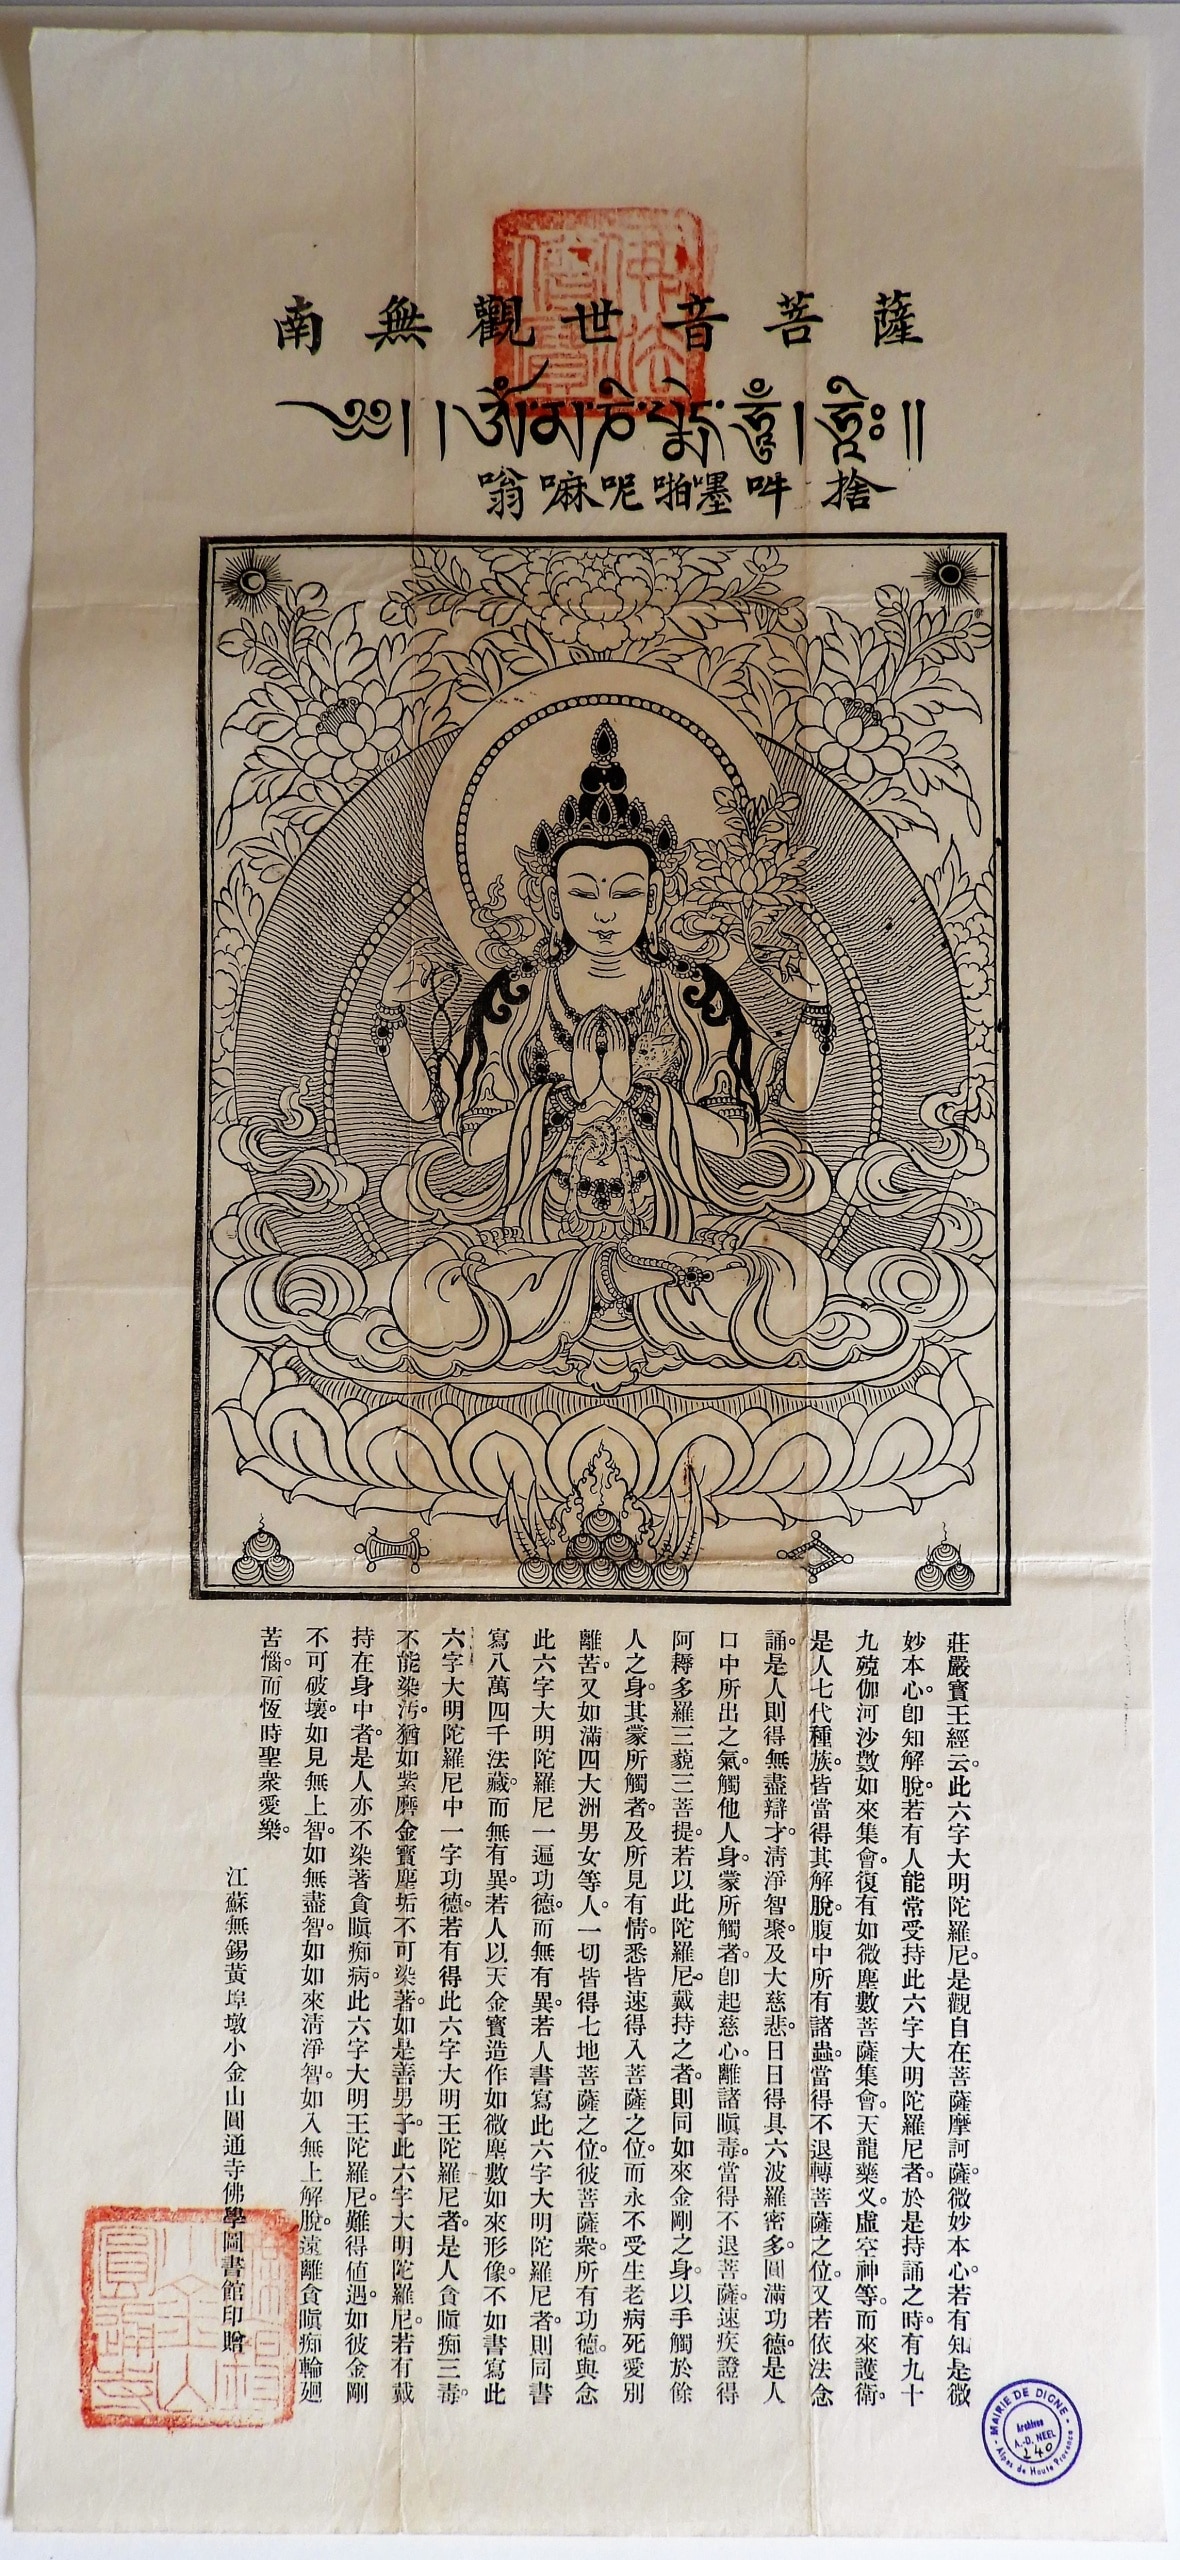 南無觀世音菩薩
༄༅། །ༀ་མ་ཎི་པདྨེ་ཧཱུྃ། ཧྲཱིཿ ༎
嗡嘛呢啪嚜吽 捨
莊嚴寶王經云。此六字大明陀羅尼。是觀自在菩薩摩訶薩。微妙本心。若有知是微
妙本心。卽知解脫。若有人能常受持此六字大明陀羅尼者。於是持誦之時。有九十
九殑伽河沙數如來集會。復有如微塵數菩薩集會。天龍藥义。虛空神等。而來護衛。
是人七代種族。皆當得其解脫。腹中所有諸蟲。當得不退轉菩薩之位。又若依法念
誦。是人則得無盡辯才。淸淨智聚。及大慈悲。日日得具六波羅密多。圓滿功德。是人
口中所出之氣。觸他人身。蒙所觸者。卽起慈心。離諸瞋毒。當得不退菩薩。速疾證得
阿耨多羅三藐三菩提。若以此陀羅尼。戴持之者。則同如來金剛之身。以手觸於餘
人之身。其蒙所觸者。及所見有情。悉皆速得入菩薩之位。而永不受生老病死愛別
離苦。又如滿四大洲男女等人。一切皆得七地菩薩之位。彼菩薩衆。所有功德。與念
此六字大明陀羅尼一遍功德。而無有異。若人書寫此六字大明陀羅尼者。則同書
寫八萬四千法藏。而無有異。若人以天金寶造作如微塵數如來形像。不如書寫此
六字大明陀羅尼中一字功德。若有得此六字大明王陀羅尼者。是人貪瞋痴三毒。
不能染汚。猶如紫磨金寶。塵垢不可染著。如是善男子。此六字大明陀羅尼。若有戴
持在身中者。是人亦不染著貪瞋痴病。此六字大明王陀羅尼。難得値遇。如彼金剛
不可破壞。如見無上智。如無盡智。如如來淸淨智。如入無上解脫。遠離貪瞋痴輪廻
苦惱。而恆時聖衆愛樂。
江蘇無錫黃埠墩小金山圓通寺佛學圖書館印贈
佛法僧寶
無錫小金山圓通寺
MAIRIE DE DIGNE
Archives
A.-D. NEEL
240
Alpes de Haute Provence